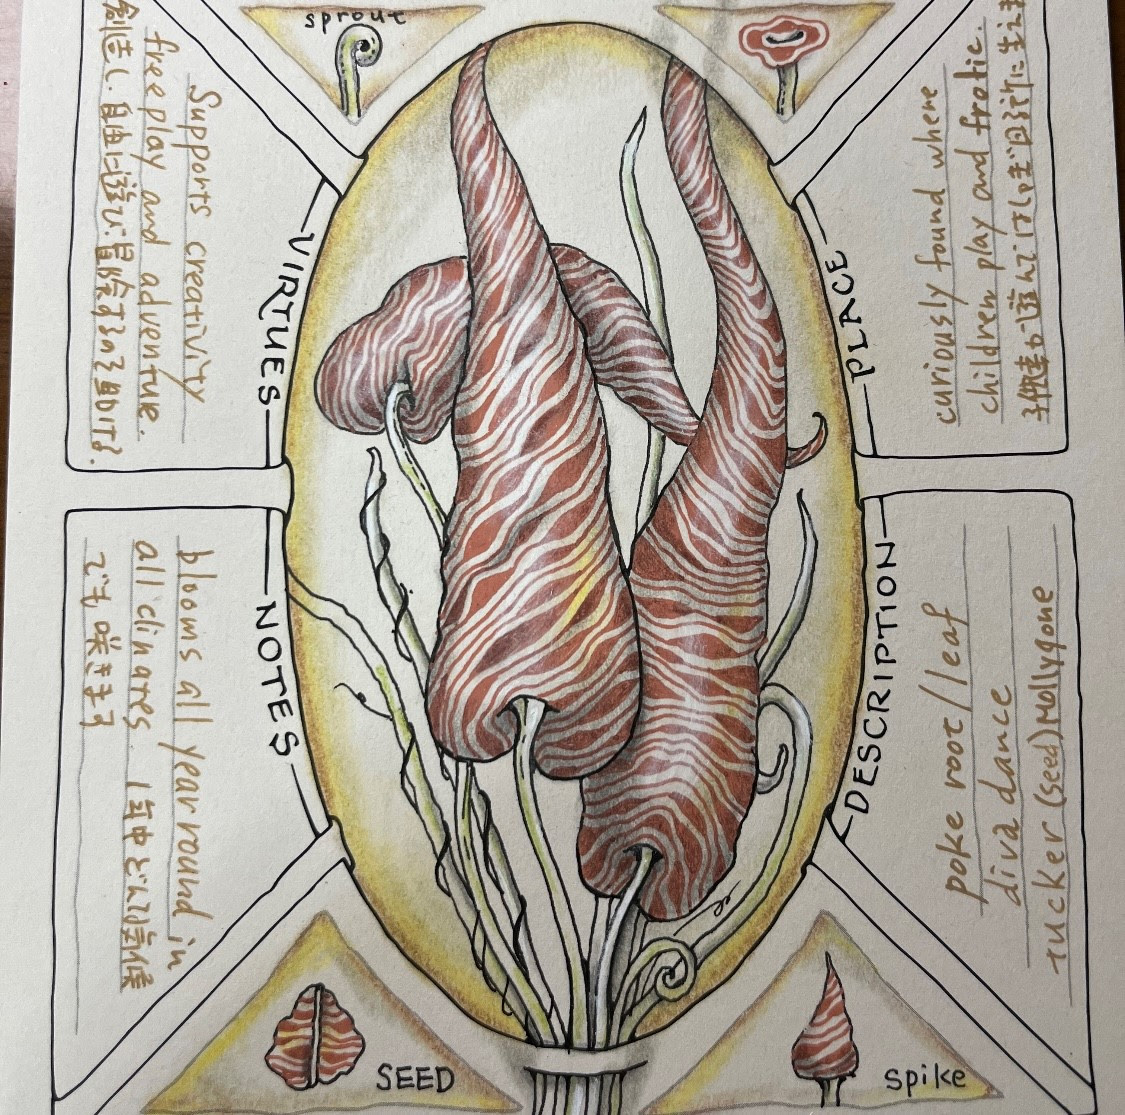 sprout
VIRTUES
Supports creativity
free play and adventure.
創造し、自由に遊び、冒険するのを助ける.
PLACE
curiously found where
children play and frolic.
子供達が遊んではしゃぐ場所に生えま
NOTES
blooms all year round in
all climates 1年中どんな気候
でも咲きます
DESCRIPTION
poke root/leaf
diva dance
tucker (seed) Mollygone
SEED
Spike